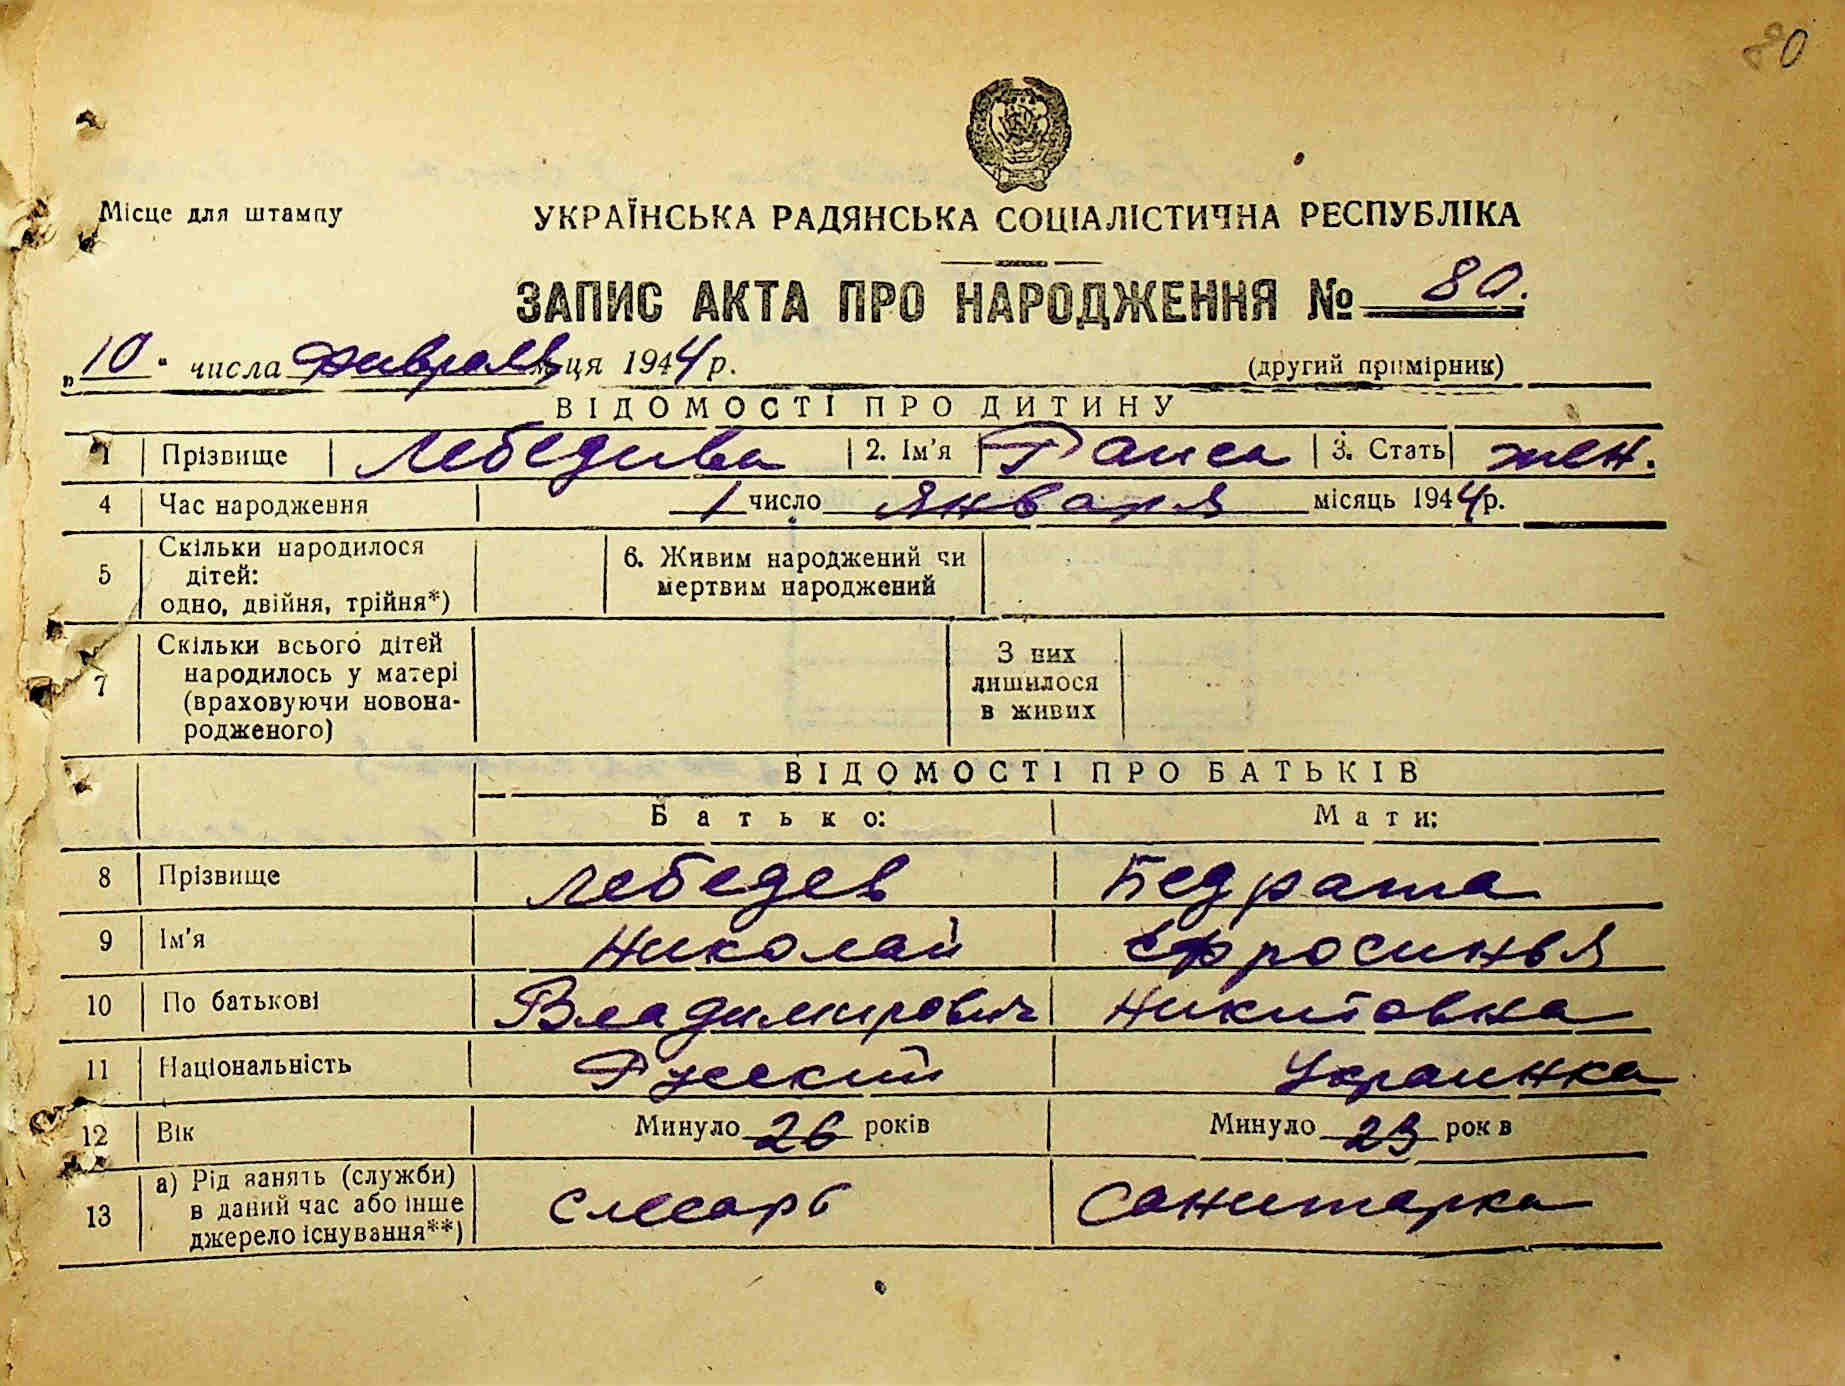 80
Місце для штампу
УКРАЇНСЬКА РАДЯНСЬКА СОЦІАЛІСТИЧНА РЕСПУБЛІКА
ЗАПИС АКТА ПРО НАРОДЖЕННЯ № 80.
„10" числа февраля місяця 1944 р. (другий примірник)
ВІДОМОСТІ ПРО ДИТИНУ
1 Прізвище Лебедива 2. Ім'я Раиса 3. Стать жен.
4 Час народження 1 число января місяць 1944 р.
5 Скільки народилося
дітей:
одно, двійня, трійня*)
6. Живим народжений чи
мертвим народжений
7 Скільки всього дітей
народилось у матері
(враховуючи новона-
родженого)
З них
лишилося
в живих
ВІДОМОСТІ ПРО БАТЬКІВ
Батько: Мати:
8 Прізвище Лебедев Бедрата
9 Ім'я Николай Ефросинья
10 По батькові Владимирович Никитовна
11 Національність Русский Украинка
12 Вік Минуло 26 років Минуло 23 рок в
13 а) Рід занять (служби)
в даний час або інше
джерело існування**)
слесарь санитарка